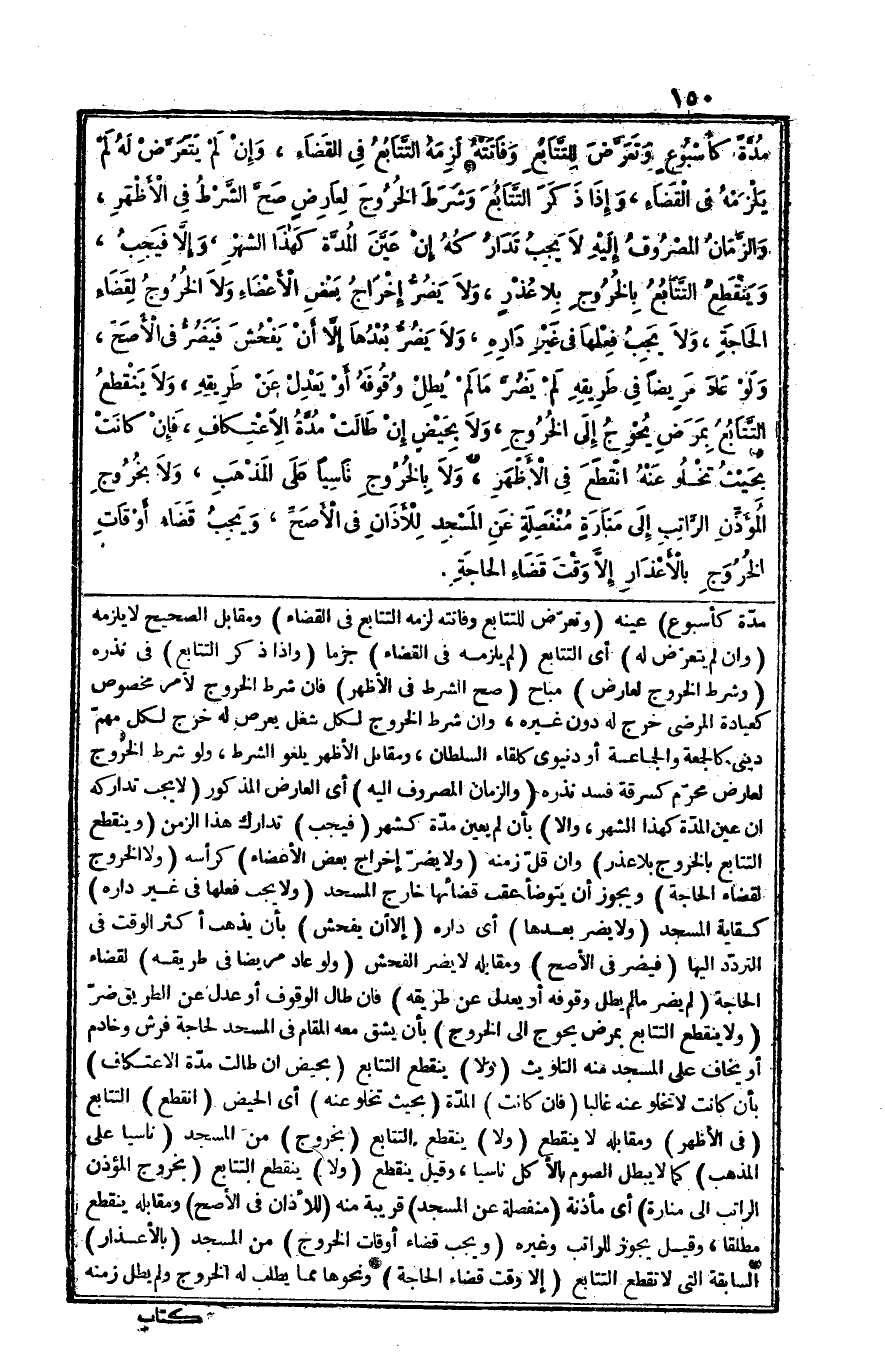 ١٥٠
مُدَّةً كَأُسْبُوعٍ وَتَعَرَّضَ لِلتَّتَابُعِ وَفَاتَتْهُ لَزِمَهُ التَّتَابُعُ فِى القَضَاءِ ، وَإِنْ لَمْ يَتَعَرَّضْ لَهُ لَمْ
يَلْزَمْهُ فِى الْقَضَاءِ ، وَإِذَا ذَكَرَ التَّتَابُعَ وَشَرَطَ الخُرُوجَ لِعَارِضٍ صَحَّ الشَّرْطُ فِى الْأَظْهَرِ ،
وَالزَّمَانُ المَصْرُوفُ إِلَيْهِ لاَ يَجِبُ تَدَارُكُهُ إِنْ عَيَّنَ المُدَّةَ كَهٰذَا الشهْرِ ، وَإِلَّا فَيَجِبُ ،
وَيَنْقَطِعُ التَّتَابُعُ بِالخُرُوجِ بِلاَ عُذْرٍ ، وَلاَ يَضُرُّ إِخْرَاجُ بَعْضِ الْأَعْضَاءِ وَلاَ الخُرُوجُ لِقَضَاءِ
الحَاجَةِ ، وَلاَ يَجِبُ فِعْلُهَا فِى غَيْرِ دَارِهِ ، وَلاَ يَضُرُّ بُعْدُهَا إِلَّا أَنْ يَفْحُشَ فَيَضُرُّ فِى الْأَصَحِّ ،
وَلَوْ عَادَ مَرِيضاً فِى طَرِيقِهِ لَمْ يَضُرَّ مَالَمْ يُطِلْ وُقُوفَهُ أَوْ يَعْدِلْ عَنْ طَرِيقِهِ ، وَلاَ يَنْقَطِعُ
التَّتَابُعُ بِمَرَضٍ يُحْوِجُ إِلَى الخُرُوجِ ، وَلاَ بِحَيْضٍ إِنْ طَالَتْ مُدَّةُ الِاعْتِكَافِ ، فَإِنْ كَانَتْ
بِحَيْثُ تَخْلُو عَنْهُ انْقَطَعَ فِى الْأَظْهَرِ ، وَلاَ بِالخُرُوجِ نَاسِياً عَلَى المَذْهَبِ ، وَلاَ بِخُرُوجِ
المُؤَذِّنِ الرَّاتِبِ إِلَى مَنَارَةٍ مُنْفَصِلَةٍ عَنِ المَسْجِدِ لِلْأَذَانِ فِى الْأَصَحِّ ، وَيَجِبُ قَضَاءُ أَوْقَاتِ
الخُرُوجِ بِالْأَعْذَارِ إِلاَّ وَقْتَ قَضَاءِ الحَاجَةِ .
مدّة كأسبوع) عينه (وتعرّض للتتابع وفاتته لزمه التتابع فى القضاء) ومقابل الصحيح لايلزمه
(وان لم يتعرّض له) أى التتابع (لم يلزمه فى القضاء) جزما (واذا ذكر التتابع) فى نذره
(وشرط الخروج لعارض) مباح (صح الشرط فى الأظهر) فان شرط الخروج لأمر مخصوص
كعيادة المرضى خرج له دون غيره ، وان شرط الخروج لكل شغل يعرض له خرج لكل مهمّ
دينى كالجمعة والجماعة أو دنيوى كلقاء السلطان ، ومقابل الأظهر يلغو الشرط ، ولو شرط الخروج
لعارض محرّم كسرقة فسد نذره (والزمان المصروف اليه) أى العارض المذكور (لايجب تداركه
ان عين المدّة كهذا الشهر ، والا) بأن لم يعين مدّة كشهر (فيجب) تدارك هذا الزمن (وينقطع
التتابع بالخروج بلاعذر) وان قلّ زمنه (ولايضرّ إخراج بعض الأعضاء) كرأسه (ولاالخروج
لقضاء الحاجة) ويجوز أن يتوضأ عقب قضائها خارج المسجد (ولايجب فعلها فى غير داره)
كسقاية المسجد (ولايضر بعدها) أى داره (إلاأن يفحش) بأن يذهب أكثر الوقت فى
التردّد اليها (فيضر فى الأصح) ومقابله لايضر الفحش (ولو عاد مريضا فى طريقه) لقضاء
الحاجة (لم يضر مالم يطل وقوفه أو يعدل عن طريقه) فان طال الوقوف أو عدل عن الطريق ضرّ
(ولاينقطع التتابع بمرض يحوج الى الخروج) بأن يشق معه المقام فى المسجد لحاجة فرش وخادم
أو يخاف على المسجد منه التلويث (ولا) ينقطع التتابع (بحيض ان طالت مدّة الاعتكاف)
بأن كانت لاتخلو عنه غالبا (فان كانت) المدّة (بحيث تخلو عنه) أى الحيض (انقطع) التتابع
(فى الأظهر) ومقابله لاينقطع (ولا) ينقطع التتابع (بخروج) من المسجد (ناسيا على
المذهب) كما لايبطل الصوم بالأكل ناسيا ، وقيل ينقطع (ولا) ينقطع التتابع (بخروج المؤذن
الراتب الى منارة) أى مأذنة (منفصلة عن المسجد) قريبة منه (للأذان فى الأصح) ومقابله ينقطع
مطلقا ، وقيل يجوز للراتب وغيره (ويجب قضاء أوقات الخروج) من المسجد (بالأعذار)
السابقة التى لاتقطع التتابع (إلا وقت قضاء الحاجة) ونحوها مما يطلب له الخروج ولم يطل زمنه
كتاب